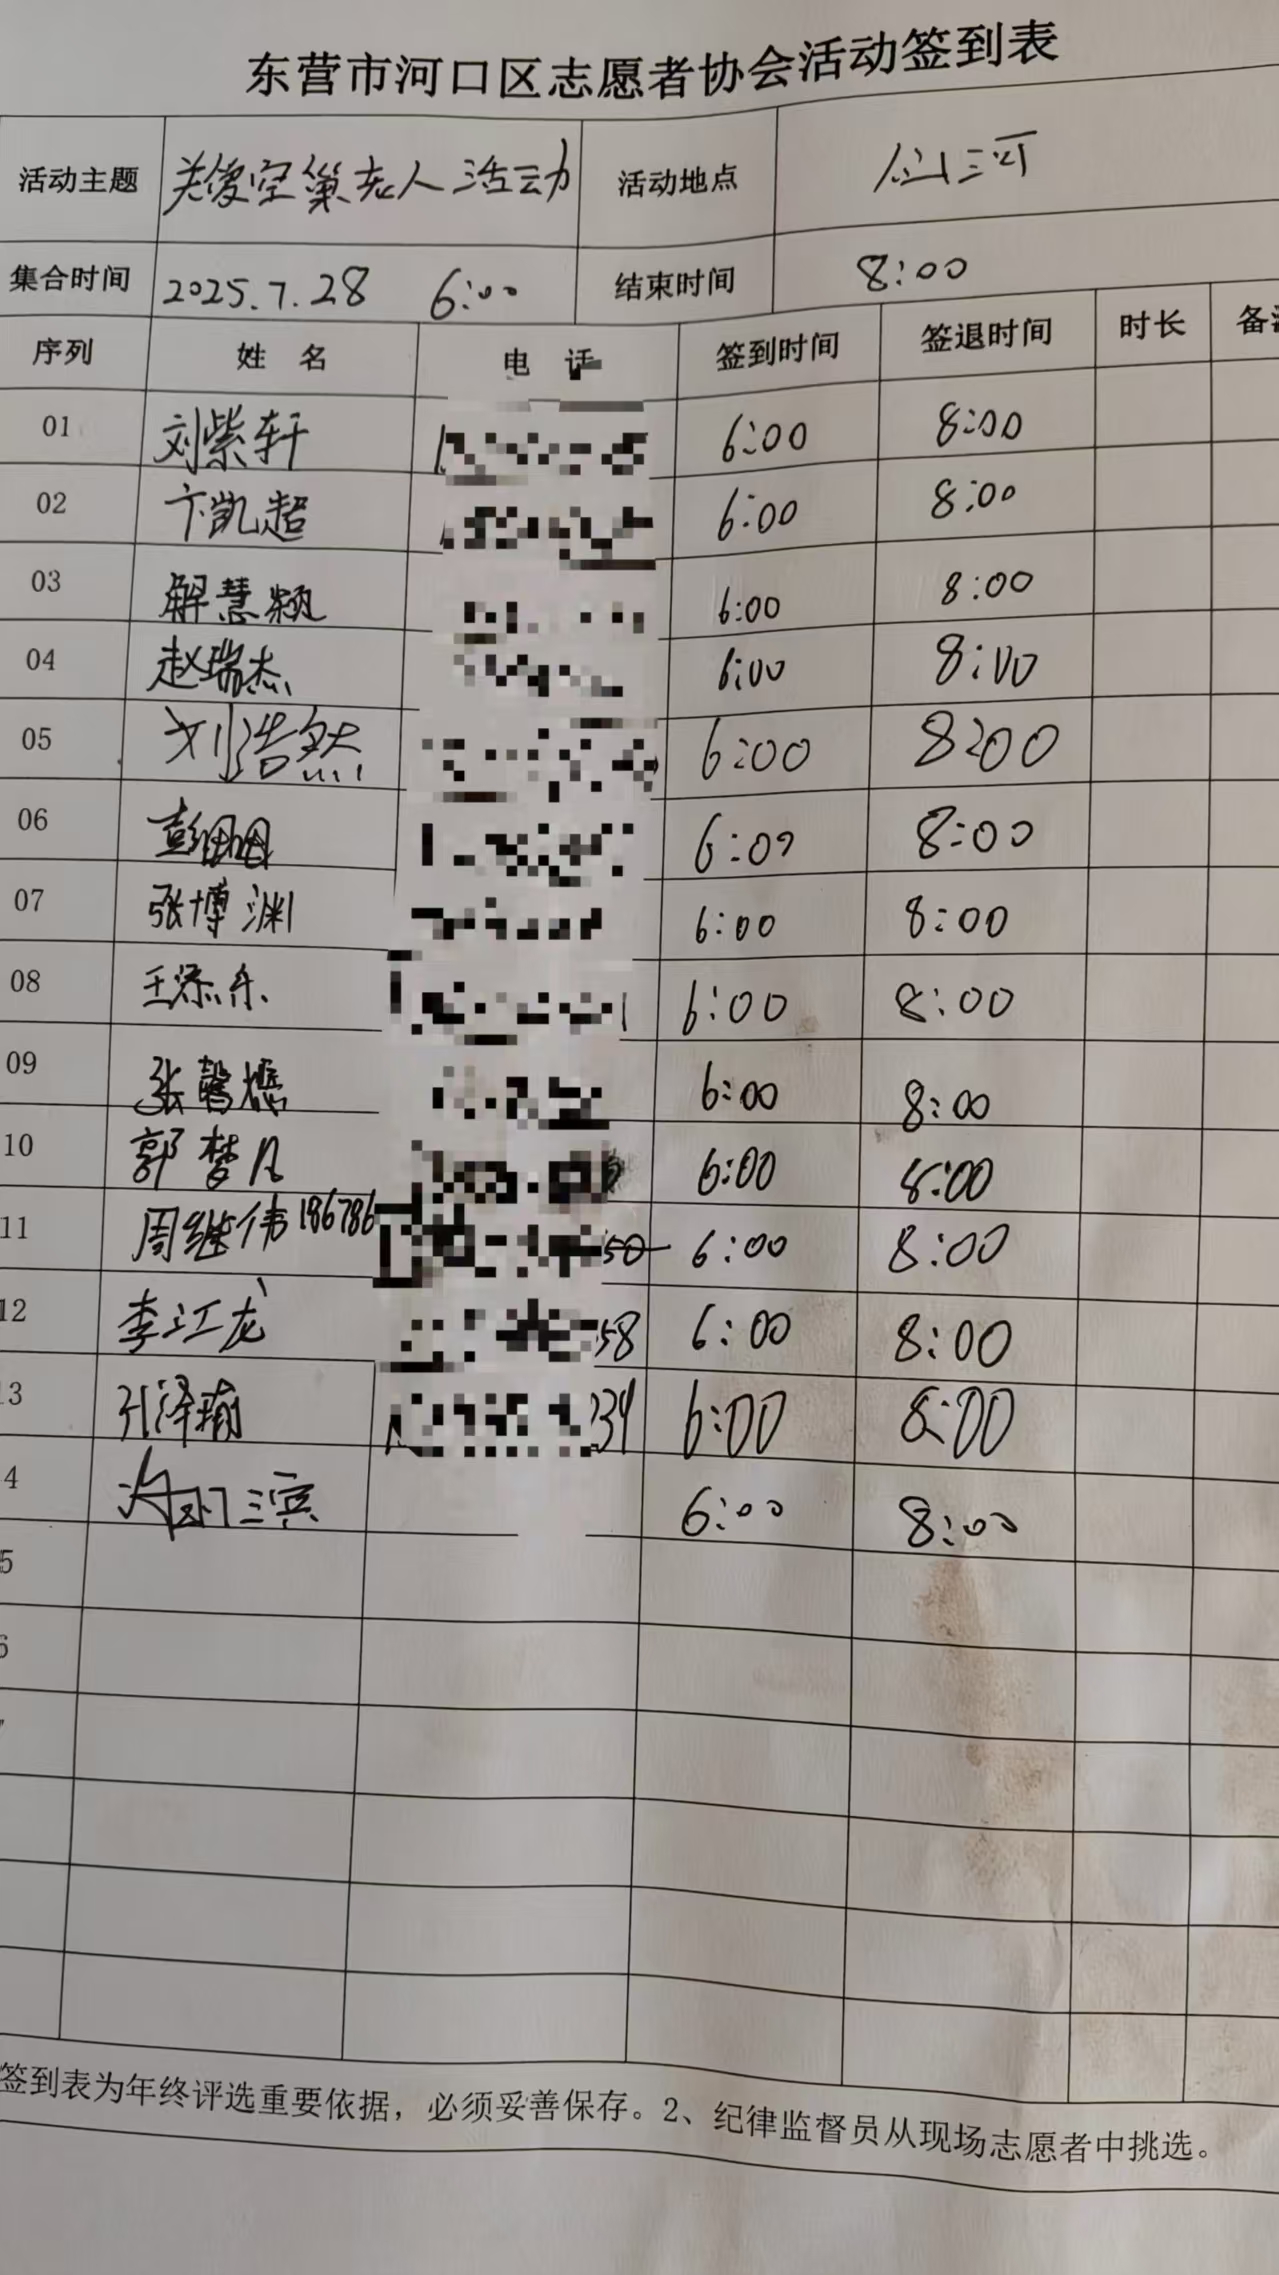 东营市河口区志愿者协会活动签到表
活动主题 关爱空巢老人活动 活动地点 仙河
集合时间 2025.7.28 6:00 结束时间 8:00
序列 姓名 电话 签到时间 签退时间 时长 备
01 刘紫轩 6:00 8:00
02 卞凯超 6:00 8:00
03 解慧颖 6:00 8:00
04 赵瑞杰 6:00 8:00
05 刘浩然 6:00 8:00
06 彭 6:00 8:00
07 张博渊 6:00 8:00
08 王添乐 6:00 8:00
09 张馨 6:00 8:00
10 郭梦凡 6:00 8:00
11 周继伟 186786 50 6:00 8:00
12 李江龙 58 6:00 8:00
13 泽瑜 239 6:00 8:00
4 滨 6:00 8:00
5
6
7
签到表为年终评选重要依据，必须妥善保存。2、纪律监督员从现场志愿者中挑选。